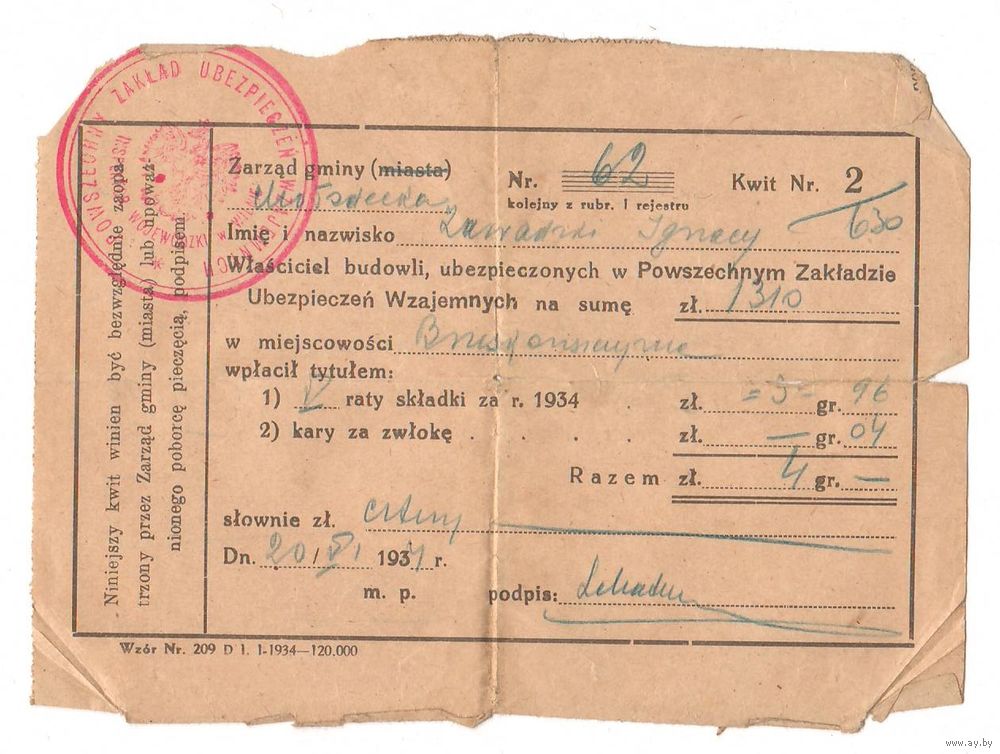 POWSZECHNY ZAKŁAD UBEZPIECZEŃ WZAJEMNYCH
WOJEWÓDZKI w WILNIE
Niniejszy kwit winien być bezwzględnie zaopa-
trzony przez Zarząd gminy (miasta) lub upoważ-
nionego poborcę pieczęcią, podpisem.
Zarząd gminy (miasta)
Nr. 62 Kwit Nr. 2
kolejny z rubr. 1 rejestru
630
Imię i nazwisko Zawadzki Ignacy
Właściciel budowli, ubezpieczonych w Powszechnym Zakładzie
Ubezpieczeń Wzajemnych na sumę zł. 1310
w miejscowości
wpłacił tytułem:
1) raty składki za r. 1934 . zł. = 3 = gr. 96
2) kary za zwłokę . . . . zł. — gr. 04
Razem zł. 4 gr. —
słownie zł. cztery
Dn. 20/XI 1934 r.
m. p. podpis:
Wzór Nr. 209 D I. I-1934—120.000
www.ay.by